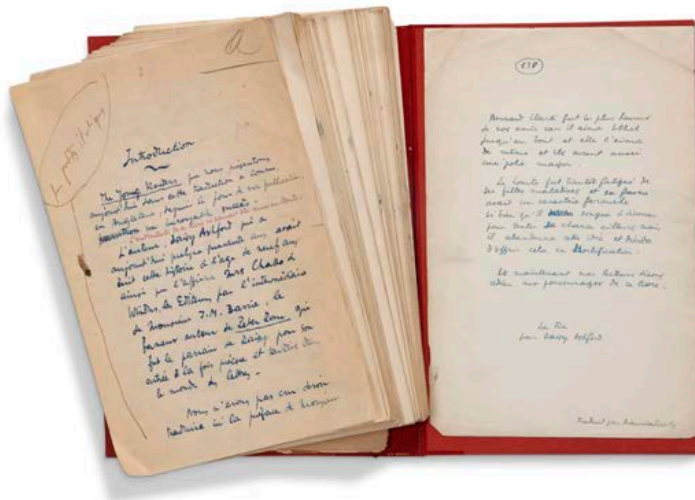 a
Introduction
The Young Visiters que nous présentons
aujourd'hui dans cette traduction a connu
en Angleterre, depuis le jour de sa publication,
un incroyable succès.
L'auteur, Daisy Ashford qui a
aujourd'hui quelque quarante ans avait
écrit cette histoire à l'âge de neuf ans
ainsi que l'affirme Mrs Chatto &
Windus, les Editeurs par l'intermédiaire
de Monsieur J.M. Barrie, le
fameux auteur de Peter Pan, qui
fut le parrain de Daisy pour son
entrée à la fois précoce et
le monde des lettres.
Nous n'avons pas cru devoir
traduire ici la préface de Monsieur
138
Bernard Clark fut le plus heureux
de nos amis car il aima Ethel
jusqu'au bout et elle l'aima
de même et ils avaient aussi
une jolie maison.
Le Comte fut bientôt fatigué de
ses filles maladives et sa femme
avait un caractère farouche
si bien qu'il
pour tenter sa chance ailleurs mais
il abandonna cette idée et
d'offrir cela en Mortification.
Et maintenant mes lecteurs disons
adieu aux personnages de ce livre.
La Fin
par Daisy Ashford
Traduit par